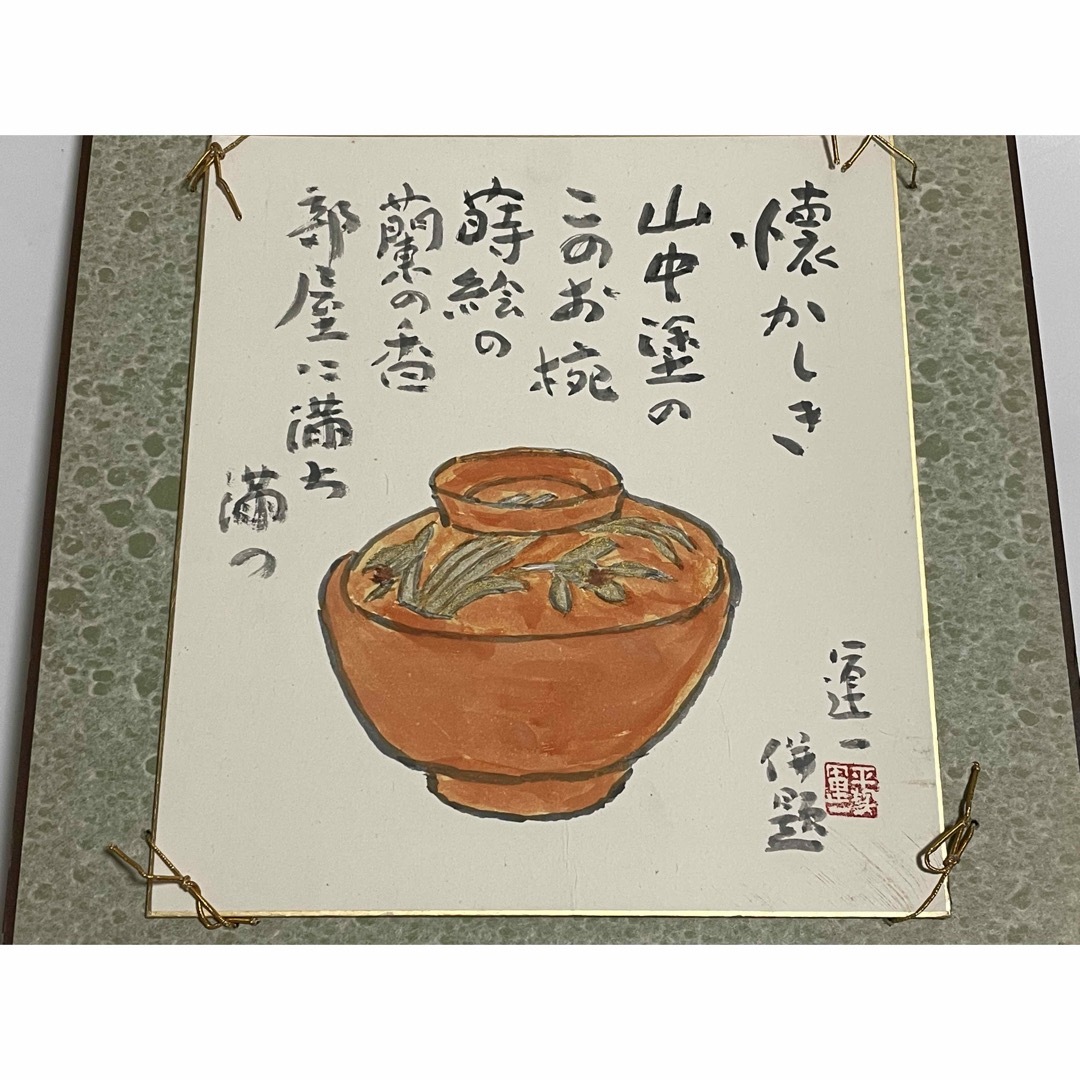 懐かしき
山中塗の
このお椀
蒔絵の
蘭の香
部屋に満ち
満つ
運一
併題